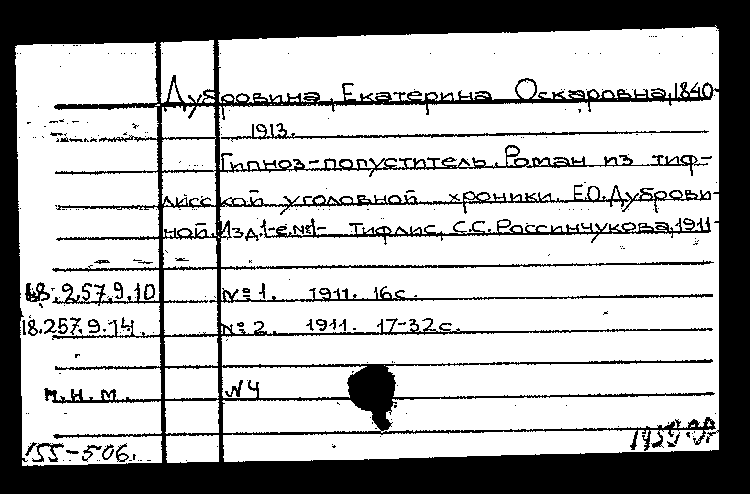 Дубровина, Екатерина Оскаровна, 1840-
1913.
Гипноз-попуститель. Роман из тиф-
лисской уголовной хроники. Е.О. Дуброви-
ной. Изд. 1-е. №1- Тифлис, С.С. Россинчукова, 1911-
18.257.9.10 №1. 1911. 16с.
18.257.9.14. №2. 1911. 17-32с.
м.н.м. №4
155-506.